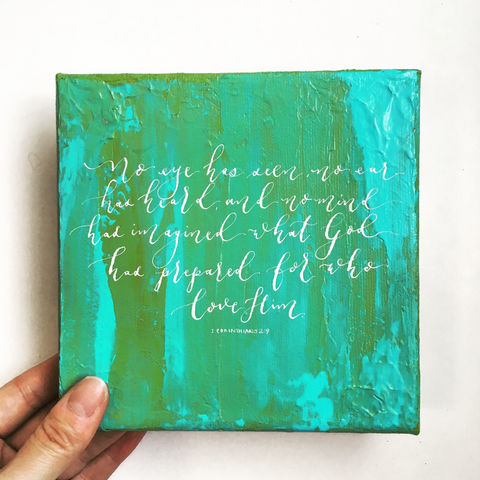 No eye has seen, no ear
has heard, and no mind
had imagined what God
had prepared for who
love Him.
1 CORINTHIANS 2:9